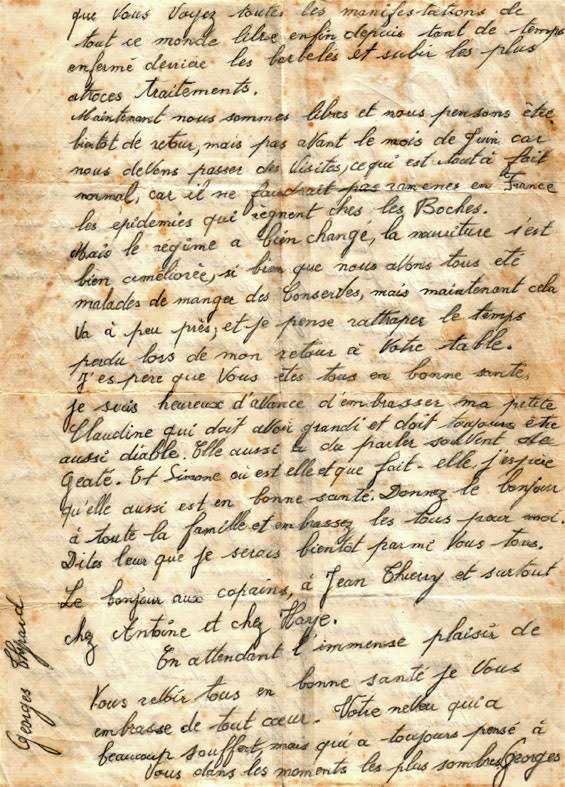 que Vous Voyez toutes les manifestations de
tout ce monde libre enfin depuis tant de temps
enfermé derrière les barbelés et subir les plus
atroces traitements.
Maintenant nous sommes libres et nous pensons être
bientôt de retour, mais pas avant le mois de Juin car
nous devons passer des Visites, ce qui est tout à fait
normal, car il ne faudrait pas ramenes en France
les épidémies qui règnent ches les Boches.
Mais le régime a bien changé, la nourriture s'est
bien améliorée, si bien que nous avons tous été
malades de manger des Conserves, mais maintenant cela
va à peu près, et je pense rattraper le temps
perdu lors de mon retour à Votre table.
J'espère que Vous êtes tous en bonne santé,
je suis heureux d'avance d'embrasser ma petite
Claudine qui doit avoir grandi et doit toujours être
aussi diable. Elle aussi a du parler souvent de
Et Simone où est elle et que fait-elle, j'espère
qu'elle aussi est en bonne santé. Donnez le bonjour
à toute la famille et embrassez les tous pour moi.
Dites leur que je serais bientôt parmi Vous tous.
Le bonjour aux copains, à Jean Thierry et surtout
chez Antoine et chez
En attendant l'immense plaisir de
Vous revoir tous en bonne santé je Vous
embrasse de tout cœur. Votre neveu qui a
beaucoup souffert, mais qui a toujours pensé à
Vous dans les moments les plus sombres Georges
Georges